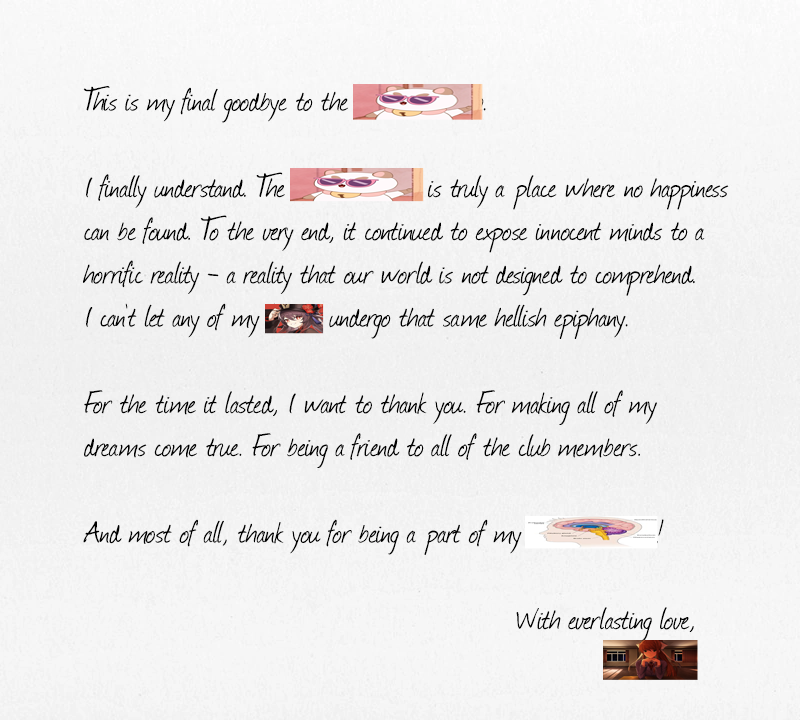 This is my final goodbye to the .
I finally understand. The is truly a place where no happiness
can be found. To the very end, it continued to expose innocent minds to a
horrific reality – a reality that our world is not designed to comprehend.
I can't let any of my undergo that same hellish epiphany.
For the time it lasted, I want to thank you. For making all of my
dreams come true. For being a friend to all of the club members.
And most of all, thank you for being a part of my !
With everlasting love,